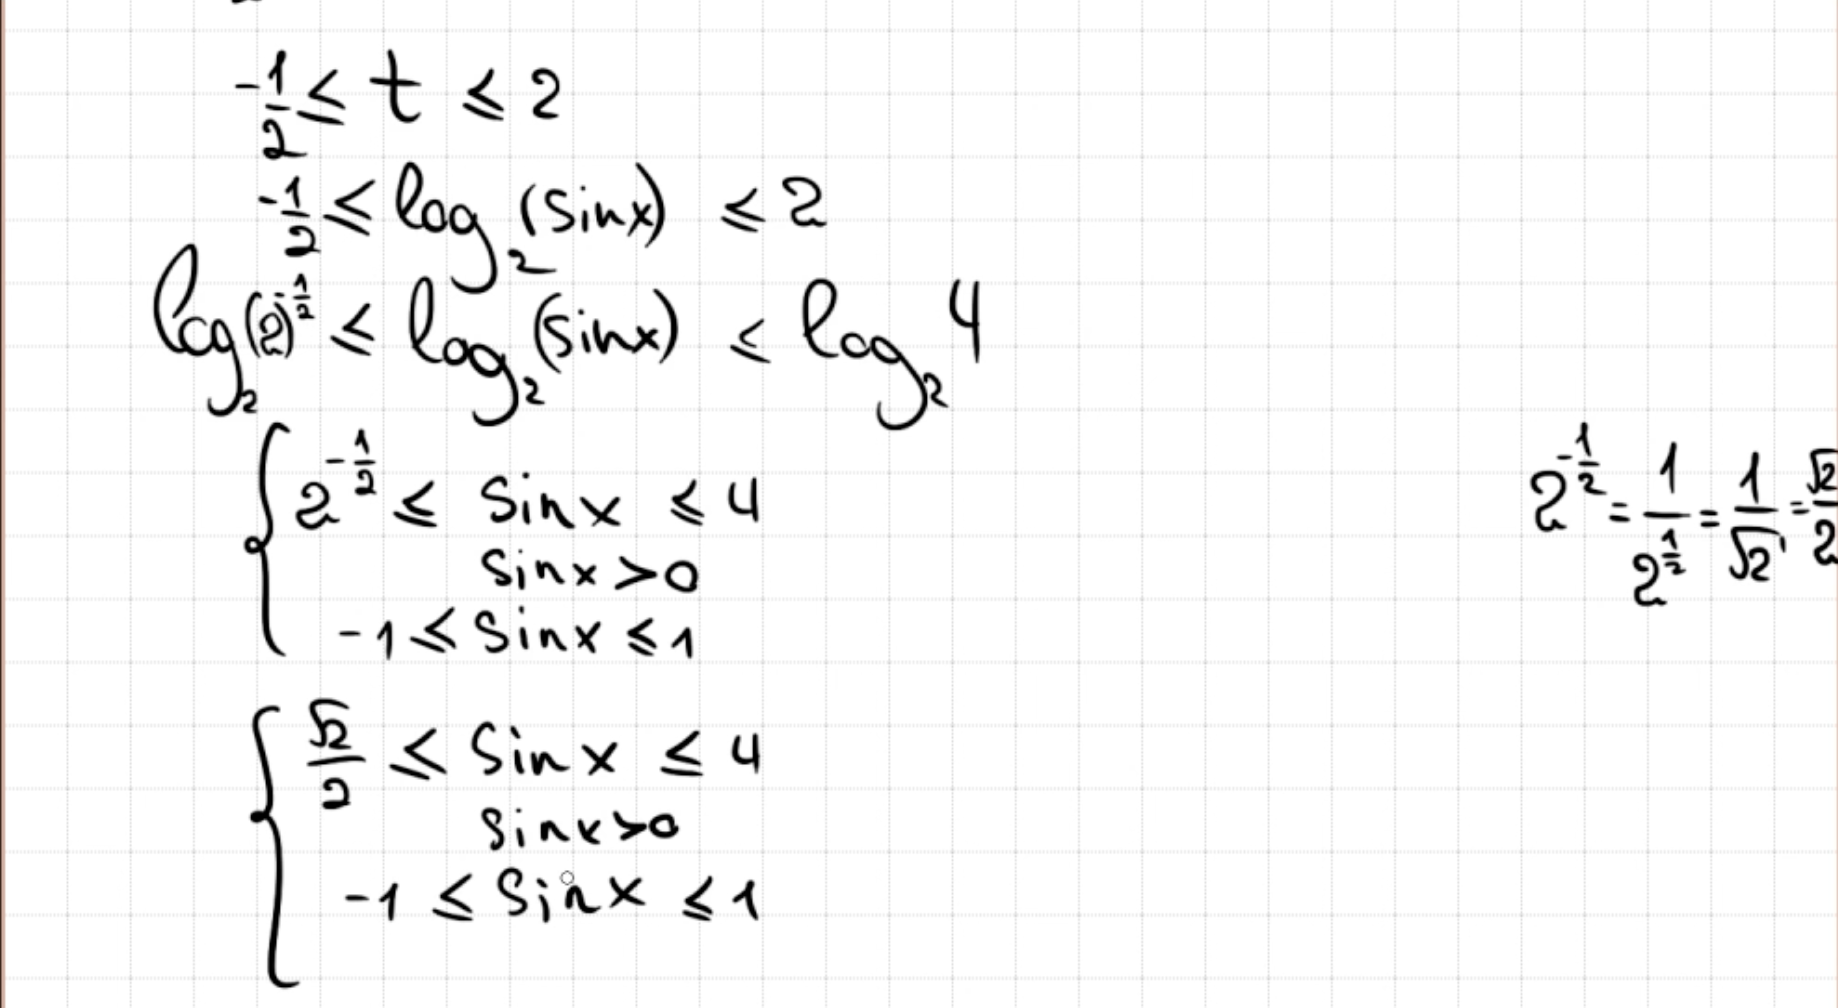 -1/2 ≤ t ≤ 2
-1/2 ≤ log₂(sinx) ≤ 2
log₂(2)^(-1/2) ≤ log₂(sinx) ≤ log₂4
{ 2^(-1/2) ≤ sinx ≤ 4
sinx>0
-1 ≤ sinx ≤ 1
2^(-1/2) = 1/2^(1/2) = 1/√2 = √2/2
{ √2/2 ≤ sinx ≤ 4
sinx>0
-1 ≤ sinx ≤ 1